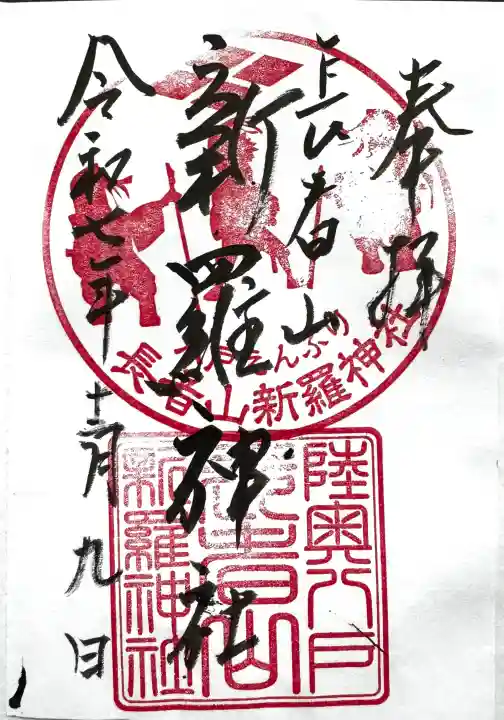 奉拝
長者山
新羅神社
令和七年
十二月九日
八戸えんぶり
長者山新羅神社
陸奥八戸
長者山
新羅神社